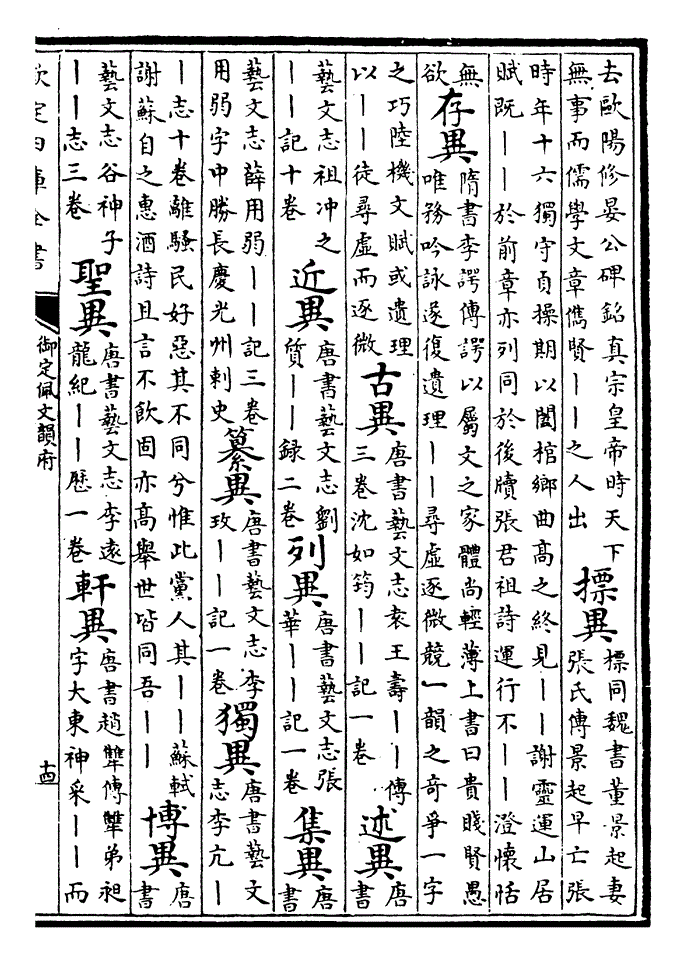 去歐陽修晏公碑銘真宗皇帝時天下
無事而儒學文章儁賢丨丨之人出
摽異
摽同魏書董景起妻
張氏傳景起早亡張
時年十六獨守貞操期以闔棺鄉曲高之終見丨丨謝靈運山居
賦既丨丨於前章亦列同於後牘張君祖詩運行不丨丨澄懷恬
無
欲
存異
隋書李諤傳諤以屬文之家體尚輕薄上書曰貴賤賢愚
唯務吟詠遂復遺理丨丨尋虛逐微競一韻之奇爭一字
之巧陸機文賦或遺理
以丨丨徒尋虛而逐微
古異
唐書藝文志袁王壽丨丨傳
三卷沈如筠丨丨記一卷
述異
唐
書
藝文志祖冲之
丨丨記十卷
近異
唐書藝文志劉
質丨丨録二卷
列異
唐書藝文志張
華丨丨記一卷
集異
唐
書
藝文志薛用弱丨丨記三卷
用弱字中勝長慶光州刺史
纂異
唐書藝文志李
玫丨丨記一卷
獨異
唐書藝文
志李亢丨
丨志十卷離騷民好惡其不同兮惟此黨人其丨丨蘇軾
謝蘇自之惠酒詩且言不飲固亦高舉世皆同吾丨丨
博異
唐
書
藝文志谷神子
丨丨志三卷
聖異
唐書藝文志李遠
龍紀丨丨歷一卷
軒異
唐書趙犨傳犨弟昶
字大東神采丨丨而
欽定四庫全書
御定佩文韻府
十四